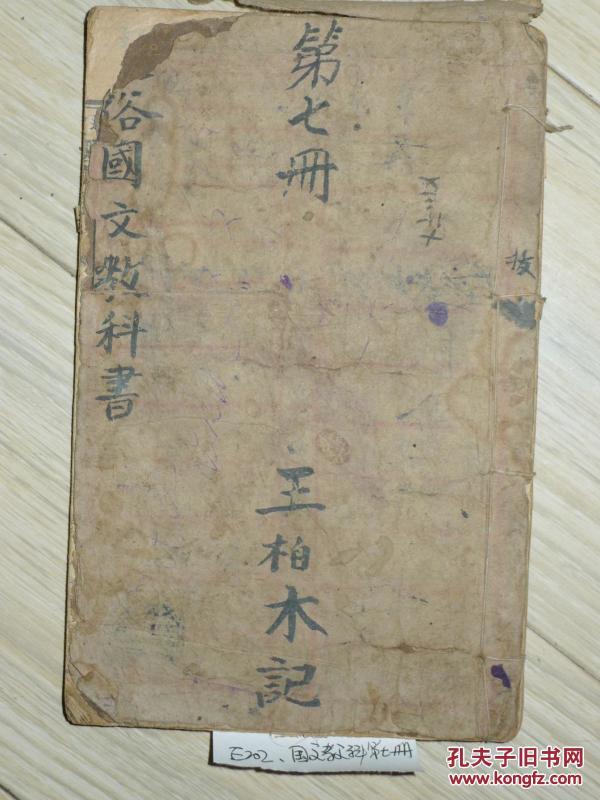 第七冊
王柏木記
俗國文教科書
E202、国文教科第七册
孔夫子旧书网
www.kongfz.com